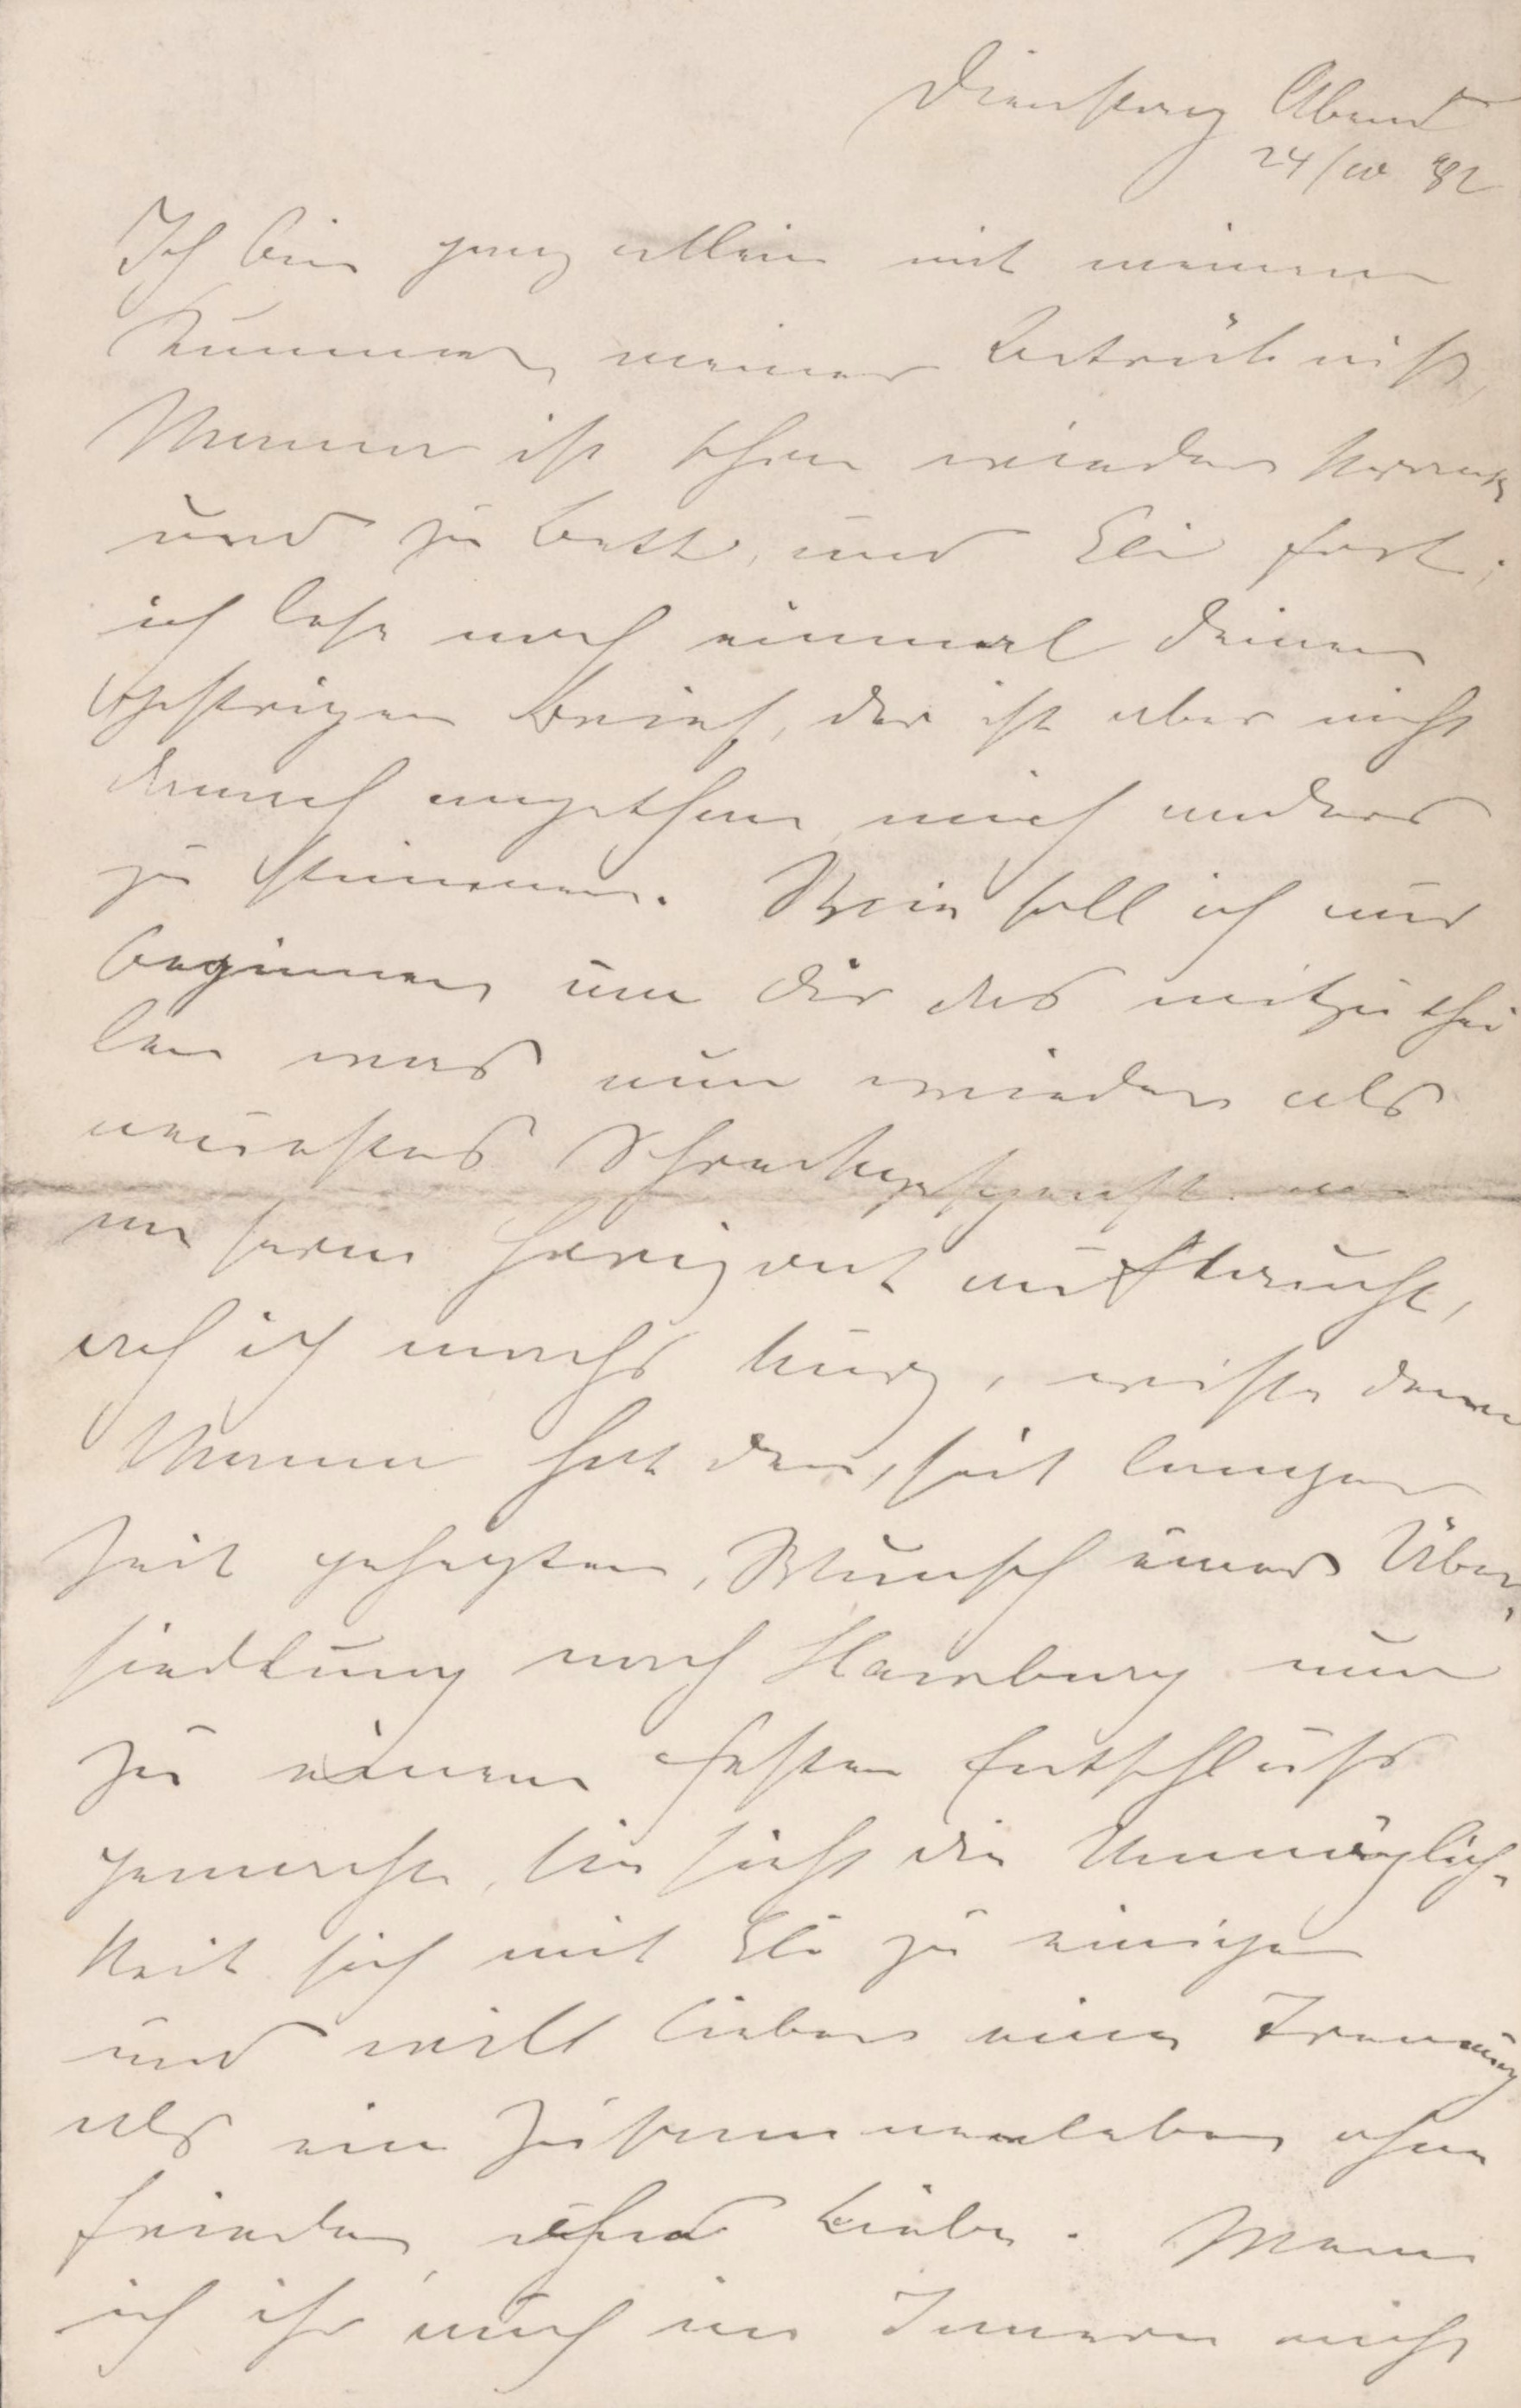 Dienstag Abend
24/10 82
Ich bin ganz allein mit meinem
Kummer, meiner Betrübniß,
Mama ist schon wieder krank
und zu Bett, und Eli fort;
ich lese noch einmal Deinen
gestrigen Brief, der ist aber nicht
danach angethan mich anders
zu stimmen. Wie soll ich nur
beginnen um Dir das mitzuthei
len was nun wieder als
neuestes Schreckgespenst an
unserm Horizont auftaucht,
ach ich machs kurz, wisse denn
Mama hat den, seit langer
Zeit gehegten, Wunsch einer Über,
siedlung nach Hamburg nun
zu einem festen Entschluß
gemacht, sie sieht die Unmöglich-
keit sich mit Eli zu einigen
und will lieber eine Trennung
als ein Zusammenleben ohne
Frieden, ohne Liebe. Wenn
ich ihr auch im Innern nicht